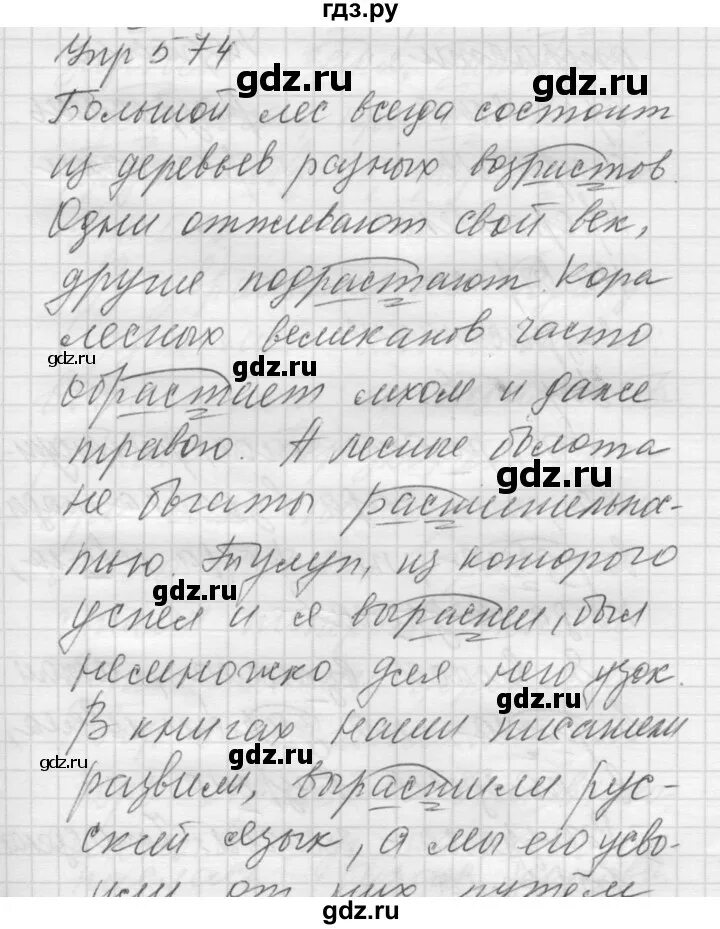 гдз.ру
Упр 574
Большой лес всегда состоит
из деревьев разных возрастов.
Одни отживают свой век,
другие подрастают. Кора
лесных великанов часто
обрастает мхом и даже
травою. А лесные болота
не богаты растительнос-
тью. Тулуп, из которого
успел и я вырасти, был
немножко для него узок.
В книгах наши писатели
развили, вырастили рус-
ский язык, а мы его усво-
или от них путём
gdz.ru
gdz.ru
gdz.ru
gdz.ru
gdz.ru
gdz.ru
gdz.ru
gdz.ru
gdz.ru
gdz.ru
gdz.ru